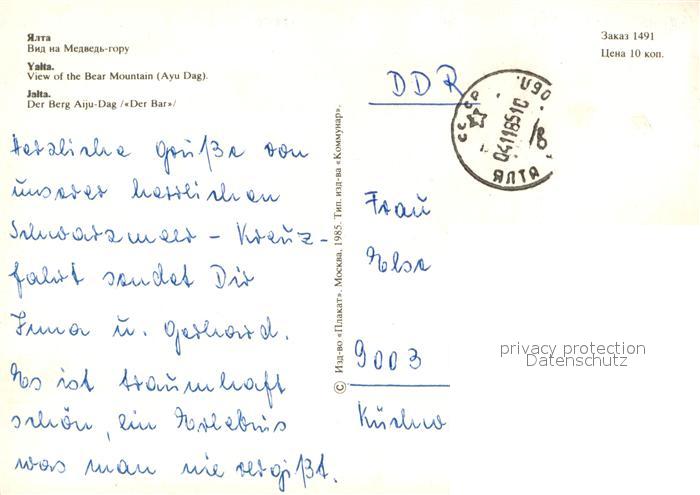 Ялта
Вид на Медведь-гору
Yalta.
View of the Bear Mountain (Ayu Dag).
Jalta.
Der Berg Aiju-Dag /«Der Bar»/
Заказ 1491
Цена 10 коп.
DDR
СССР
04118510
ЯЛТА
Herzliche Grüße von
unserer herrlichen
Schwarzmeer - Kreuz-
fahrt sendet Dir
Irma u. Gerhard.
Es ist traumhaft
schön, ein Erlebnis
was man nie vergißt.
© Изд-во «Плакат». Москва, 1985. Тип. изд-ва «Коммунар».
Frau
Elsa
9003
privacy protection
Datenschutz